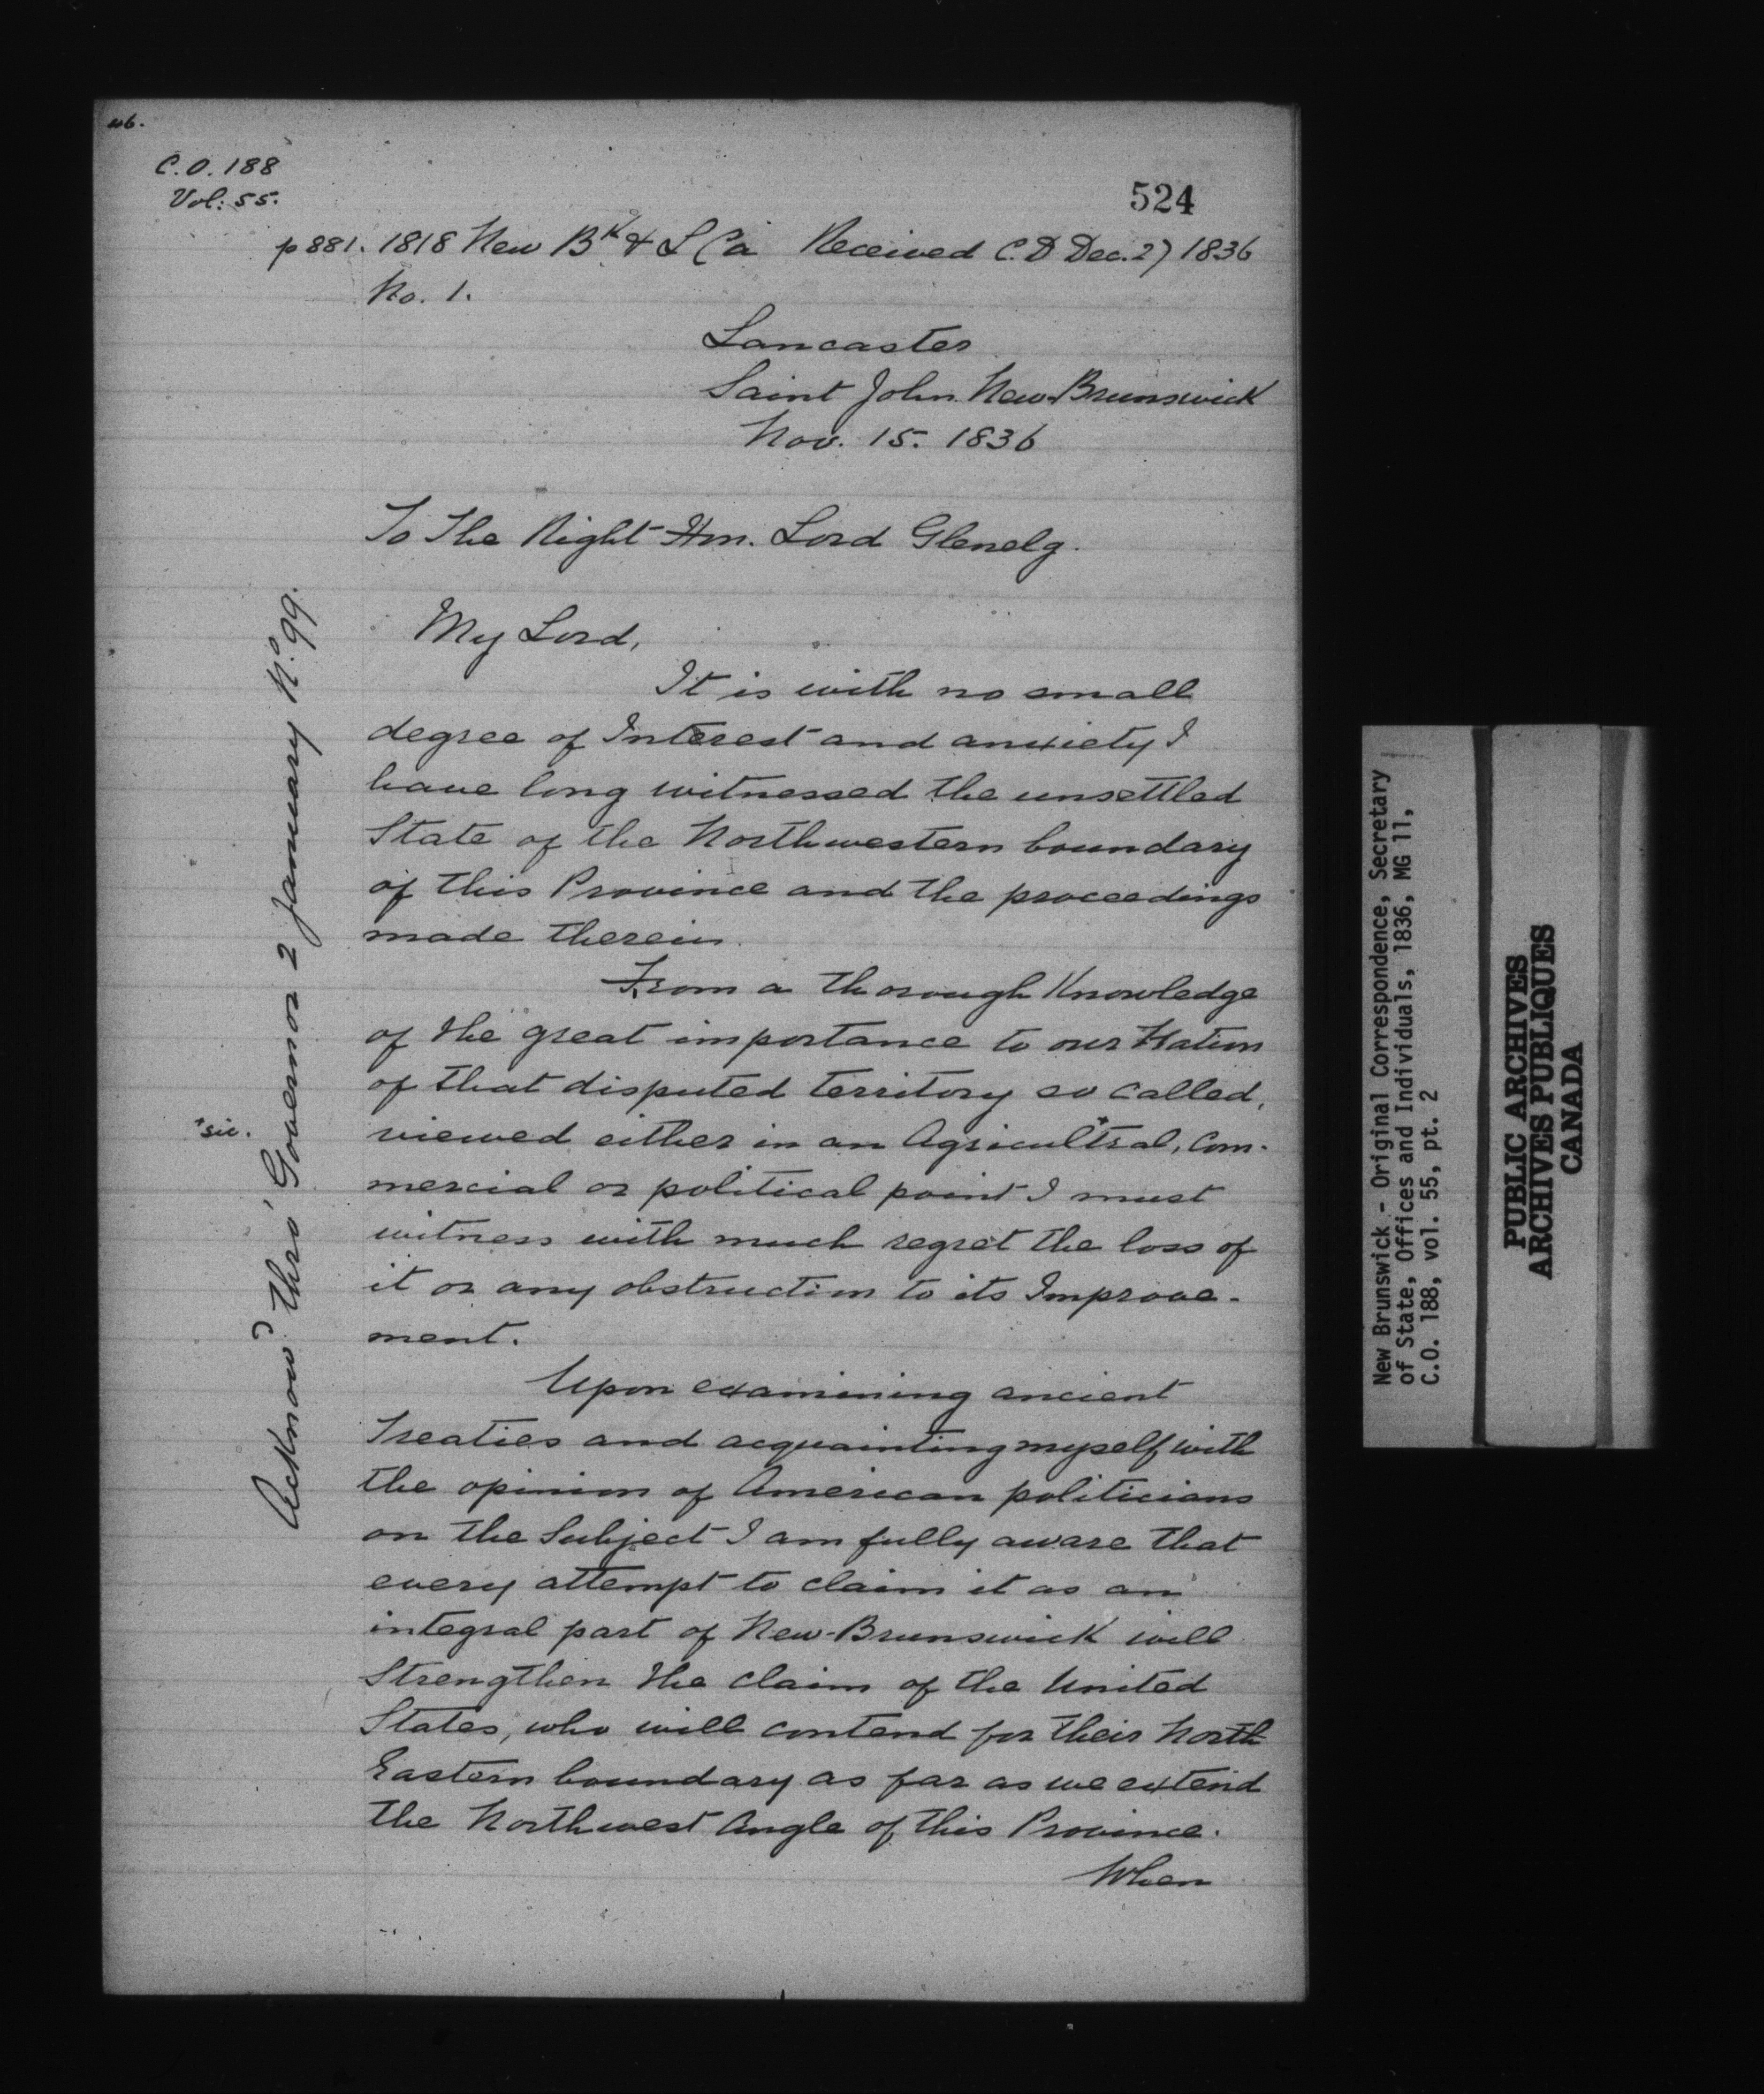 C.O. 188
Vol: 55.
524
p 881. 1818 New Bk & L Ca Received C.D Dec. 27 1836
No. 1.
Lancaster
Saint John New-Brunswick
Nov. 15. 1836
To The Right Hon. Lord Glenelg.
My Lord,
It is with no small
degree of Interest and anxiety I
have long witnessed the unsettled
State of the Northwestern boundary
of this Province and the proceedings
made therein.
From a thorough Knowledge
of the great importance to our Nation
of that disputed territory so called,
*sic.
viewed either in an Agricult*ral, Com-
mercial or political point I must
witness with much regret the loss of
it or any obstruction to its Improve-
ment.
Upon examining ancient
Treaties and acquainting myself with
the opinion of American politicians
on the Subject I am fully aware that
every attempt to claim it as an
integral part of New-Brunswick will
Strengthen the claim of the United
States, who will contend for their North
Eastern boundary as far as we extend
the Northwest Angle of this Province.
When
Acknowd. thro' Governor 2 January No. 99.
New Brunswick - Original Correspondence, Secretary
of State, Offices and Individuals, 1836, MG 11,
C.O. 188, vol. 55, pt. 2
PUBLIC ARCHIVES
ARCHIVES PUBLIQUES
CANADA